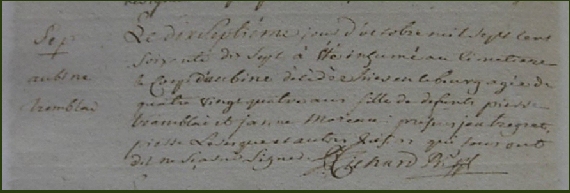 Sep.
aubine
tremblai
Le dix Septiéme jour d'octobre mil Sept cent
soixante dix Sept à été inhumé au Cimetiere
le Corps d'aubine décédée hier en ce bourg agée de
quatre vingt quatre ans fille de defunts pierre
tramblai et janne Moreau; presens jean
pierre et autres qui tous ont
dit ne Sçavoir Signer Richard